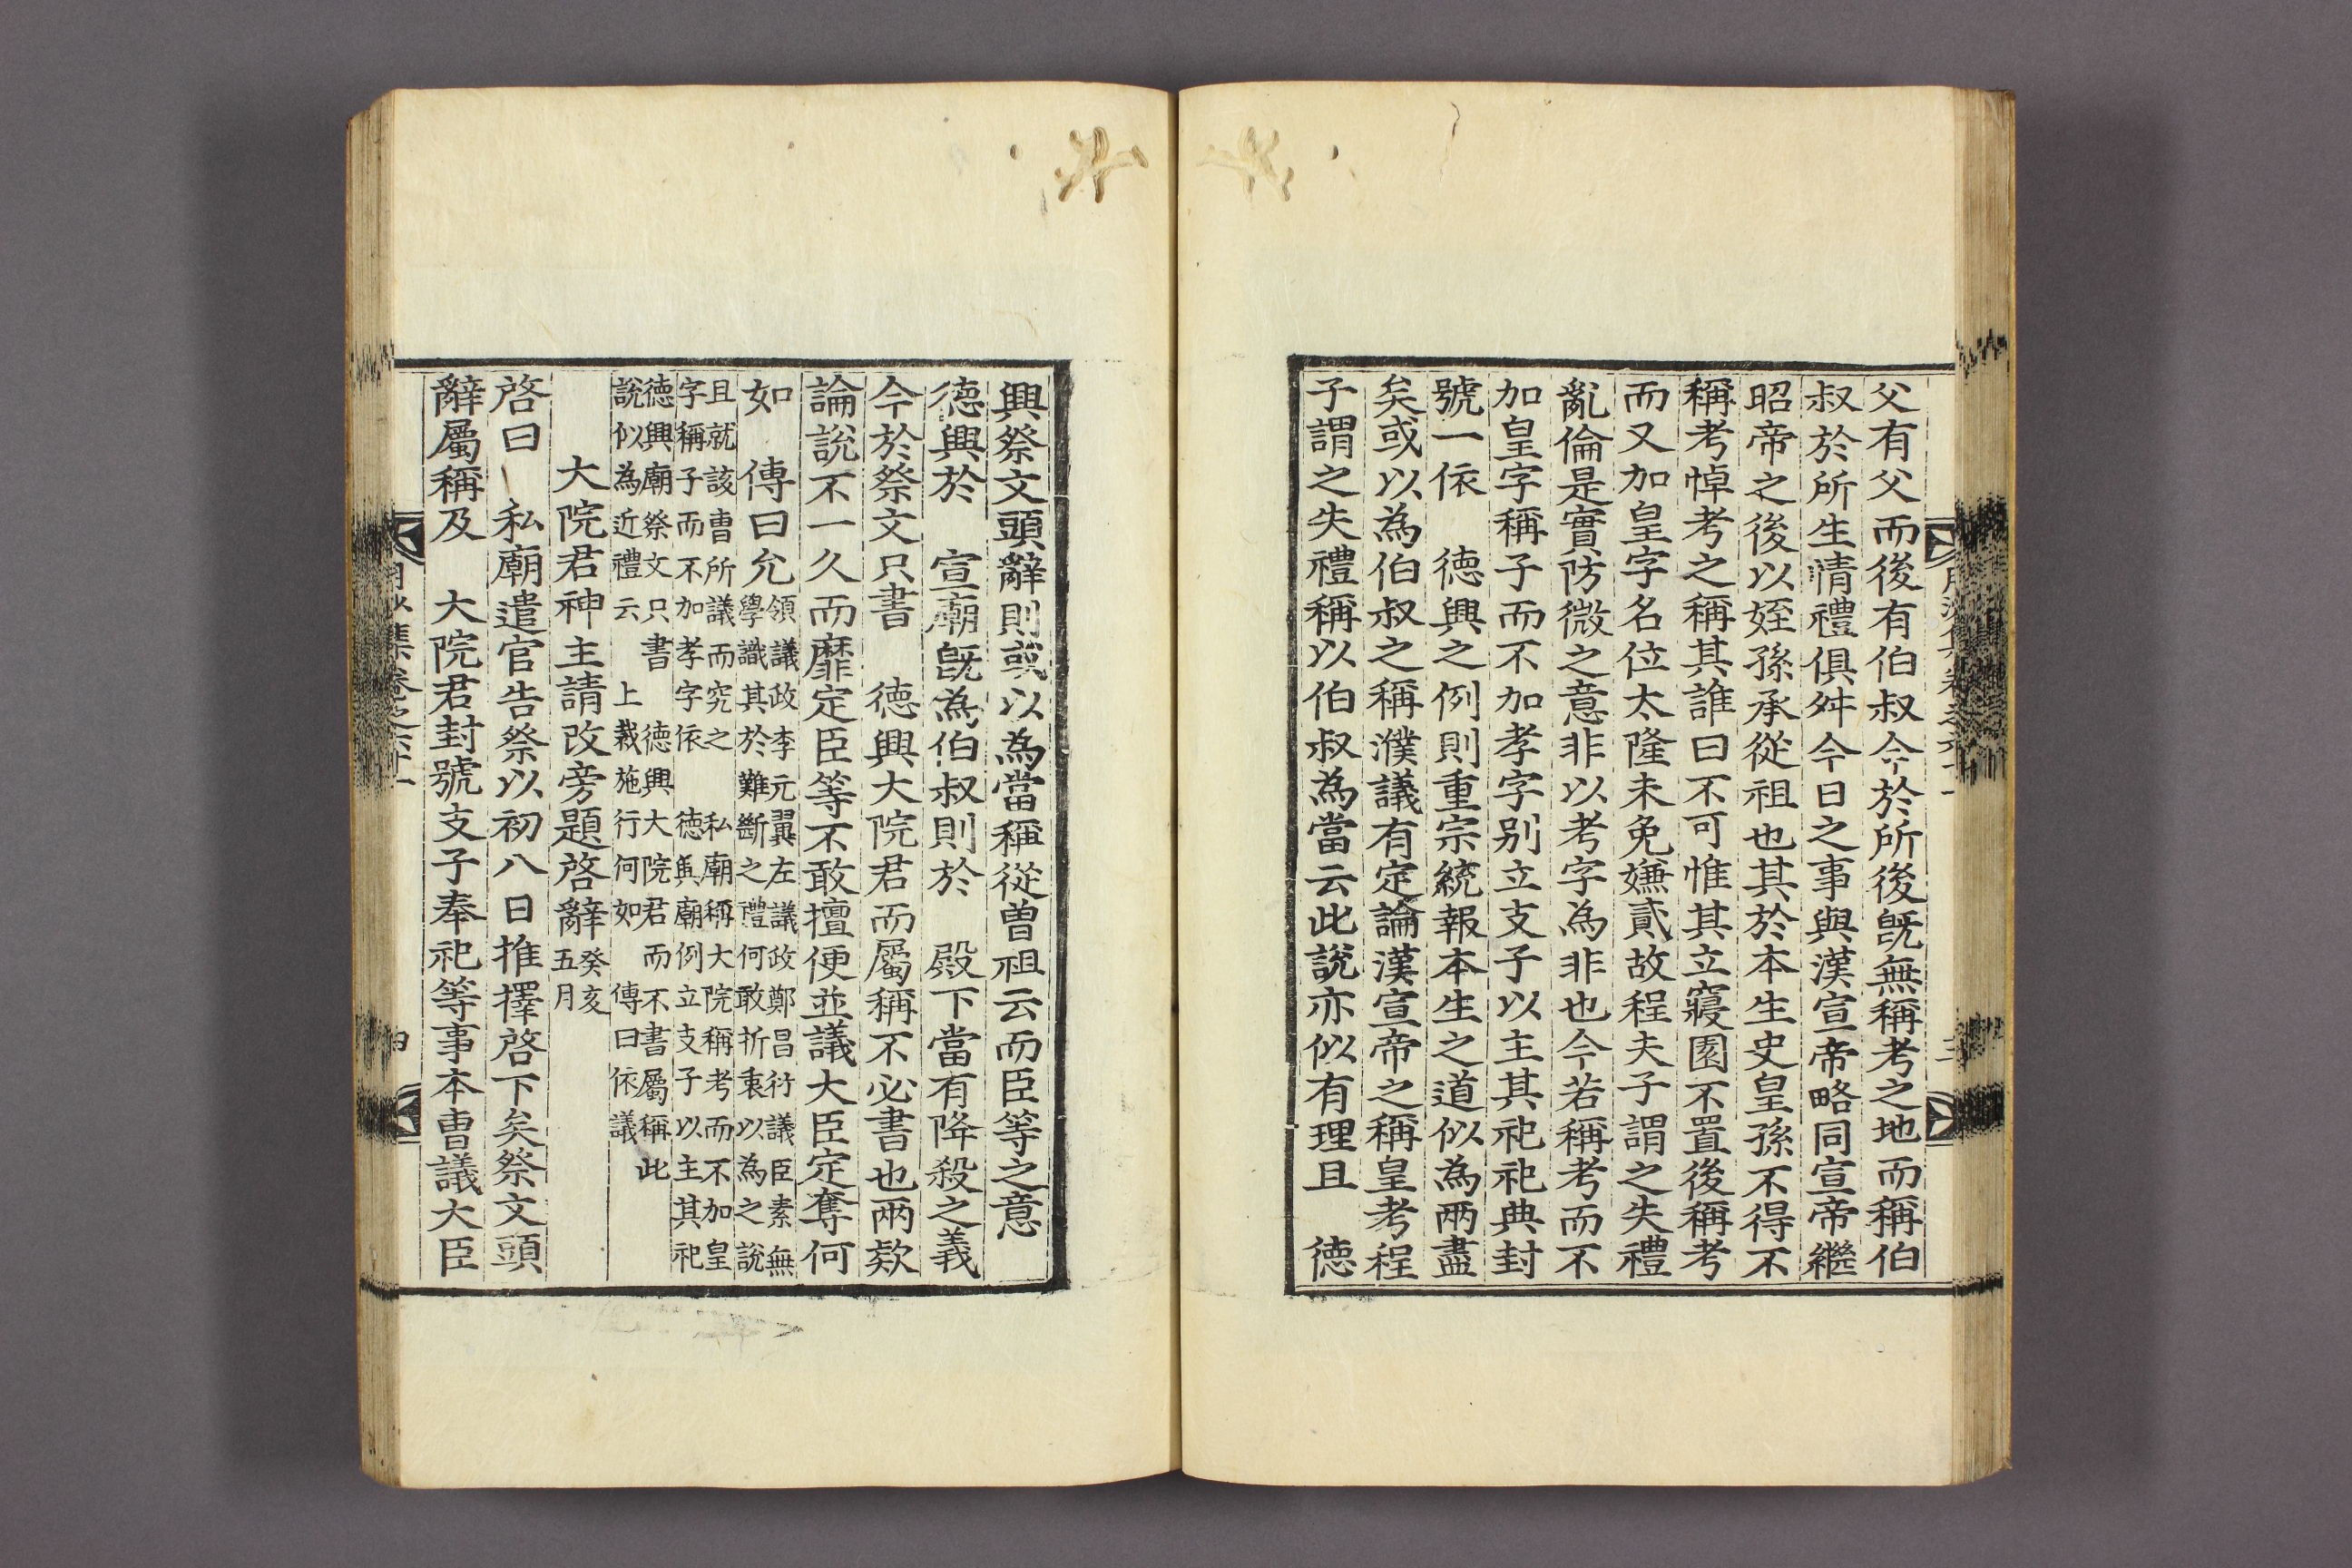 父有父而後有伯叔今於所後旣無稱考之地而稱伯
叔於所生情禮俱舛今日之事與漢宣帝略同宣帝繼
昭帝之後以姪孫承從祖也其於本生史皇孫不得不
稱考悼考之稱其誰曰不可惟其立寢園不置後稱考
而又加皇字名位太隆未免嫌貳故程夫子謂之失禮
亂倫是實防微之意非以考字為非也今若稱考而不
加皇字稱子而不加孝字别立支子以主其祀祀典封
號一依　德興之例則重宗統報本生之道似為兩盡
矣或以為伯叔之稱濮議有定論漢宣帝之稱皇考程
子謂之失禮稱以伯叔為當云此說亦似有理且　德
興祭文頭辭則或以為當稱從曾祖云而臣等之意
德興於　宣廟旣為伯叔則於　殿下當有降殺之義
今於祭文只書　德興大院君而屬稱不必書也兩款
論說不一久而靡定臣等不敢擅便並議大臣定奪何
如　傳曰允領議政李元翼左議政鄭昌衍議臣素無
學識其於難斷之禮何敢折衷以為之說
且就該曹所議而究之　私廟稱大院稱考而不加皇
字稱子而不加孝字依　德興廟例立支子以主其祀
德興廟祭文只書　德興大院君而不書屬稱此
說似為近禮云　上裁施行何如　傳曰依議
大院君神主請改旁題啓辭癸亥
五月
啓曰　私廟遣官告祭以初八日推擇啓下矣祭文頭
辭屬稱及　大院君封號支子奉祀等事本曹議大臣
集卷之六十一
四